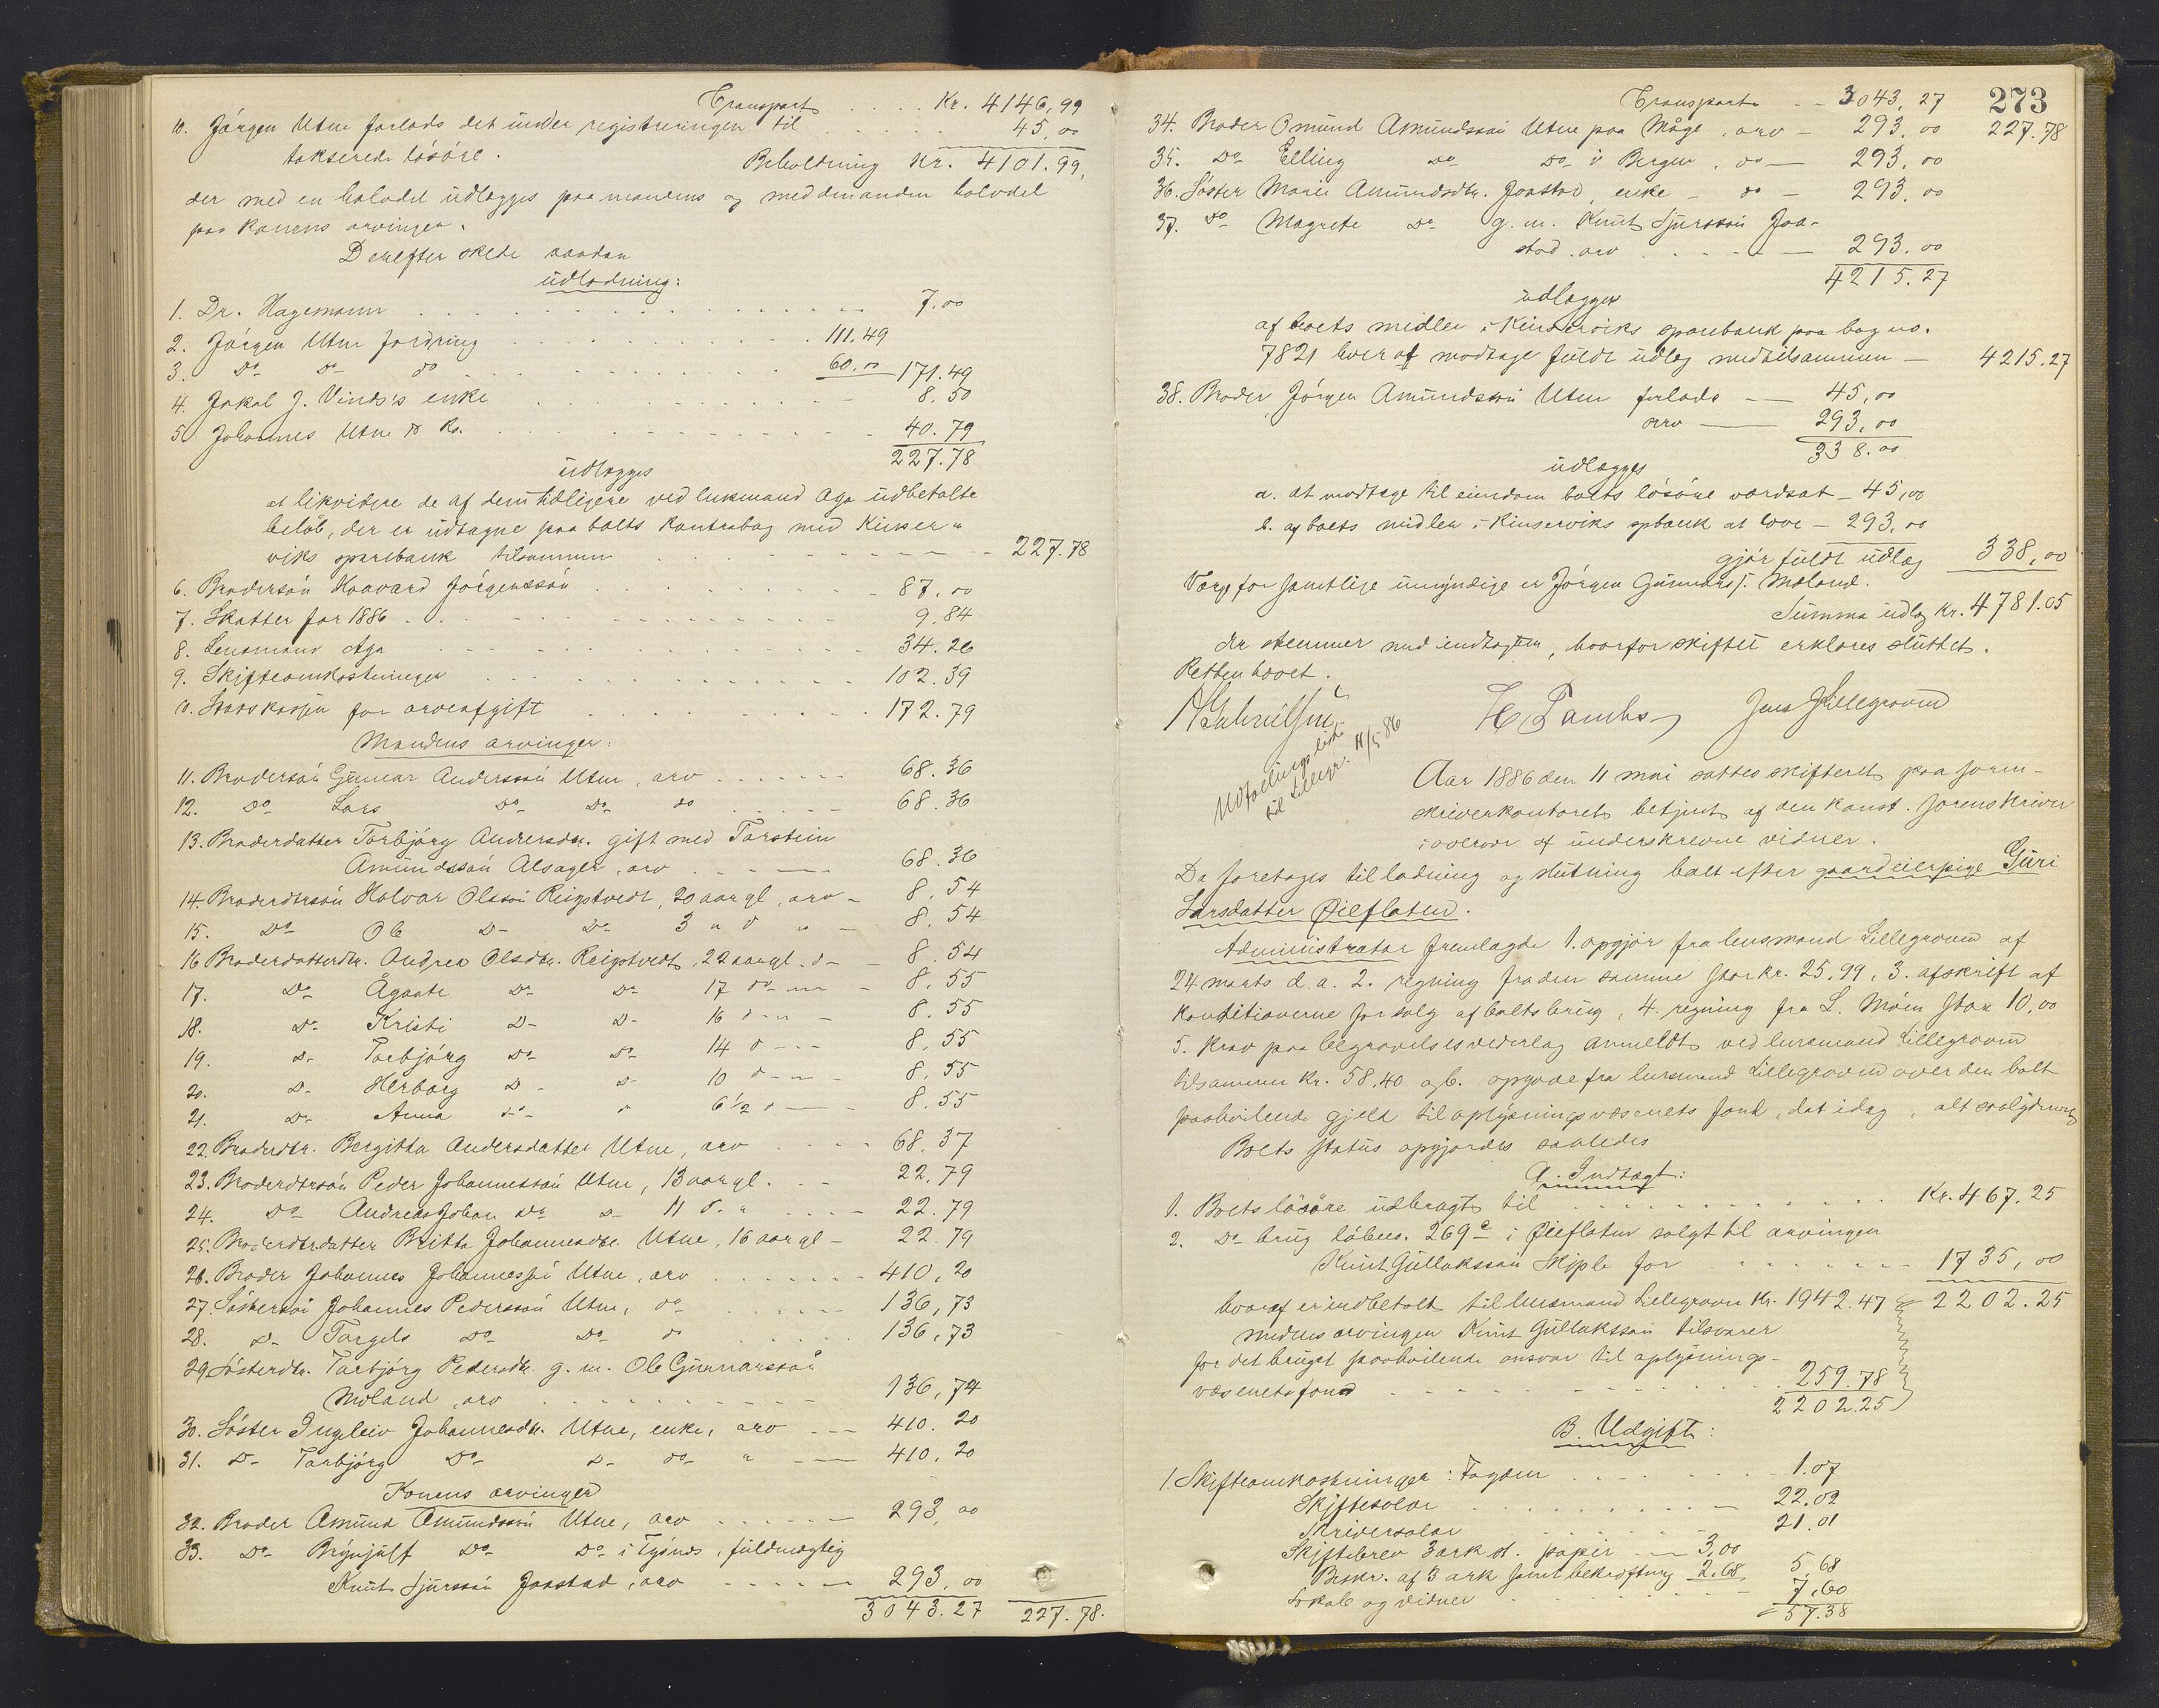 Transport . . . . Kr. 4146,99
10. Jørgen Utne forlods det under registreringen til . . . 45,00
takserede løsøre.
Beholdning Kr. 4101.99,
der med en halvdel udlægges paa mandens og med den anden halvdel
paa konens arvinger.
Derefter skede saadan
udlodning:
1. Dr. Hagemann . . . 7.00
2. Jørgen Utne fordring . . . 111.49
3. Do Do do . . . 60.00 171.49
4. Jakob J. Vinds's enke . . . 8.50
5. Johannes Utne & Ko. . . . 40.79
227.78
udlægges
at likvidere de af dem tidligere ved lensmand Aga udbetalte
beløb, der er udtagne paa boets kontrabog med Kinser-
viks sparebank tilsammen . . . 227.78
6. Brodersøn Haavard Jørgenssøn . . . 87.00
7. Skatter for 1886 . . . 9.84
8. Lensmand Aga . . . 34.26
9. Skifteomkostninger . . . 102.39
10. Statskassen for arveafgift . . . 172.79
Mandens arvinger:
11. Brodersøn Gunnar Anderssøn Utne, arv . . . 68.36
12. Do Lars Do Do do . . . 68.36
13. Broderdatter Torbjørg Andersdtr. gift med Torstein
Amundssøn Alsager, arv . . . 68.36
14. Broderdtrsøn Halvar Olssøn Reigstvedt, 20 aar gl., arv - 8.54
15. Do Ole D- Do 3 " d " - 8.54
16 Broderdatterdtr. Andrea Olsdtr. Reigstvedt, 22 aar gl. d- - 8.54
17. Do Ågaate Do Do 17 do - " - 8.55
18. Do Kristi D- D- 16 d - " - 8.55
19. D- Torbjørg Do Do 14 d - - - 8.55
20. D- Herborg D- D- 10 d - " - 8.55
21. Do Anna do- d 6½ d - - 8.55
22. Broderdtr. Bergitta Andersdatter Utne, arv . . . 68.37
23. Broderdtrsøn Peder Johannessøn Utne, 13 aar gl. . . - 22.79
24. Do Andreas Johan Do D- 11 d. " . . . - 22.79
25. Broderdtrdatter Britta Johannesdtr. Utne, 16 aar gl - 22.79
26. Broder Johannes Johannessøn Utne, arv . . . 410,20
27. Søstersøn Johannes Pederssøn Utne, do . . . 136,73
28. D- Torgils Do Do do . . . 136,73
29 Søsterdtr. Torbjørg Pedersdtr. g. m. Ole Gunnarssøn
Moland, arv . . . 136,74
30. Søster Ingleiv Johannesdtr. Utne, enke, arv . . - 410.20
31. D- Torbjørg Do D- do- " - 410,20
Konens arvinger
32. Broder Amund Amundssøn Utne, arv . . . 293,00
33. Do Brynjulf Do Do i Tysnes, fuldmægtig
Knut Sjurssøn Jaastad, arv . . . 293,00
3043.27 227.78.
273
Transport . - - 3043,27 227.78
34. Broder Omund Amundssøn Utne paa Måge, arv - 293.00
35. Do Elling Do Do i Bergen, do - 293,00
36. Søster Marie Amundsdtr. Jaastad, enke - do - 293,00
37. Do Magrete Do g. m. Knut Sjurssøn Jaa-
stad, arv . . . 293.00
4215.27
udlægges
af boets midler i Kinserviks sparebank paa bog no.
7821 hver at modtage fuldt udlæg med tilsammen - 4215.27
38. Broder Jørgen Amundssøn Utne forlods - - 45,00
arv - 293,00
338.00
udlægges
a. at modtage til eiendom boets løsøre vardsat - 45,00
b. af boets midler i Kinserviks spbank at love - 293,00
gjør fuldt udlæg 338,00
Værge for samtlige umyndige er Jørgen Gunnars/. Moland.
Summa udlæg Kr. 4781.05
der stemmer med indtægten, hvorfor skiftet erklæres sluttet.
Retten hævet.
H Lambs Jens J Lillegraven
Udfærdiget
til Lillegr. 11/5 86
Aar 1886 den 11 mai sattes skifteret paa soren-
skriverkontoret betjent af den konst. sorenskriver
i overvær af underskrevne vidner.
Da foretages til lodning og slutning boet efter gaardeierpige Guri
Larsdatter Øieflaten.
Administrator fremlagde 1. opgjør fra lensmand Lillegraven af
24 marts d. a. 2. regning fra den samme stor kr. 25,99, 3. afskrift af
konditionerne for salg af boets brug, 4. regning fra L. Moen stor 10,00
5. krav paa begravelsesvederlag anmeldt ved lensmand Lillegraven
tilsammen kr. 58.40 og 6. opgave fra lensmand Lillegraven over den boet
paahvilende gjeld til oplysningsvæsenets fond, dat idag, alt saalydende
Boets status opgjordes saaledes
A. Indtægt:
1. Boets løsøre udbragt til . . . Kr. 467.25
2. Do brug løbeno. 269c i Øieflaten solgt til arvingen
Knut Gulluksøn Skiple for . . . 1735,00
hvoraf er indbetalt til lensmand Lillegraven Kr. 1942.47 2202.25
medens arvingen Knut Gullukssøn tilsvarer
for det bruget paahvilende ansvar til oplysnings-
væsenets fond . . . 259.78
2202.25
B. Udgift:
1. Skifteomkostninger: Fogden . . . 1.07
Skiftesalar . . . 22.02
Skriversalar . . . 21.01
Skiftebrev 3 ark st. papir . . 3,00
Beskr. af 3 ark samt bekræftning 2.68 5,68
Lokale og vidner . . . 7,60
57.38